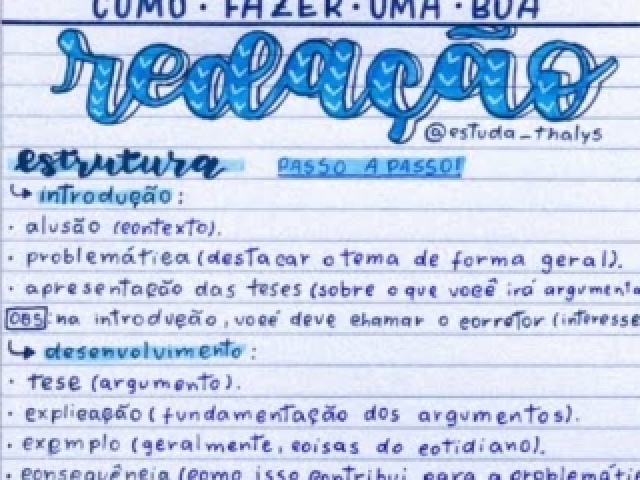 COMO · FAZER · UMA · BOA
redação
@estuda_thalys
estrutura PASSO A PASSO!
↳ introdução:
· alusão (contexto).
· problemática (destacar o tema de forma geral).
· apresentação das teses (sobre o que você irá argumenta
OBS: na introdução, você deve chamar o corretor (interesse
↳ desenvolvimento:
· tese (argumento).
· explicação (fundamentação dos argumentos).
· exemplo (geralmente, coisas do cotidiano).
· consequência (como isso contribui para a problemátic